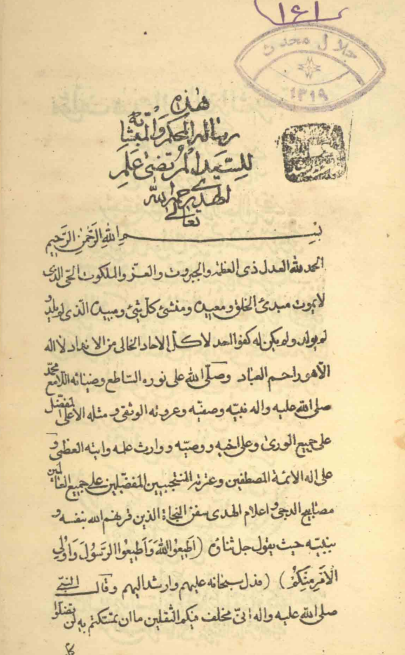 (۱۶۱)
جلال محدث
۱۳۱۹
هذه
رسالة المحكم والمتشابه
للسيد المرتضى علم
الهدى رحمه الله
تعالى
بسم الله الرحمن الرحيم
الحمد لله العدل ذى العظمة والجبروت والعز والملكوت الحى الذى
لا يموت مبدئ الخلق ومعيده ومنشئ كل شئ ومبيده الذى لم يلد و
لم يولد ولم يكن له كفوا احد لا كل الاحاد الخالى من الانداد لا اله
الا هو راحم العباد وصلى الله على نوره الساطع وضيائه اللامع محمد
صلى الله عليه واله نبيه وصفيه وعروته الوثقى ومثله الاعلى المفضل
على جميع الورى وعلى اخيه ووصيه ووارث علمه وايته العظمى و
على اله الائمة المصطفين وعترته المنتجبين المفضلين على جميع العالمين
مصابيح الدجى واعلام الهدى سفن النجاة الذين قرنهم الله بنفسه و
بنبيه حيث يقول جل ثناؤه (اطيعوا الله واطيعوا الرسول واولي
الامر منكم) فدل سبحانه عليهم وارشد اليهم وقال النبى
صلى الله عليه واله انى مخلف فيكم الثقلين ما ان تمسكتم به لن تضلوا